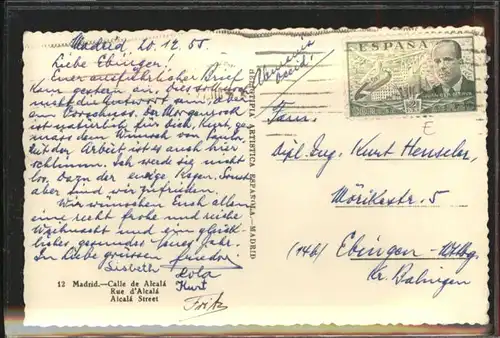 Madrid, 20.12.55.
Liebe Ebinger!
Euer ausführlicher Brief
kam gestern an. Dies soll noch
nicht die Antwort sein, aber
ein Vorschuss. Der Morgenrock
ist natürlich für Dich, Kurt, ge-
mäss dem Wunsch von
Mit der Arbeit ist es auch hier
schlimm. Ich werd sie nicht
los. Dazu der ewige Regen. Sonst
aber sind wir zufrieden.
Wir wünschen Euch allen
eine recht frohe und reiche
Weihnacht und ein glück-
liches, gesundes, neues Jahr.
In Liebe grüssen
Lisbeth
Lola
Kurt
Fritz
12 Madrid.—Calle de Alcalá
Rue d'Alcalá
Alcalá Street
HELIOTIPIA ARTISTICA ESPAÑOLA - MADRID
Alemania
ESPAÑA
Fam.
Dipl. Ing. Kurt Henseler,
Mörikestr. 5
(14b) Ebingen-Wttbg.
Kr. Balingen
E